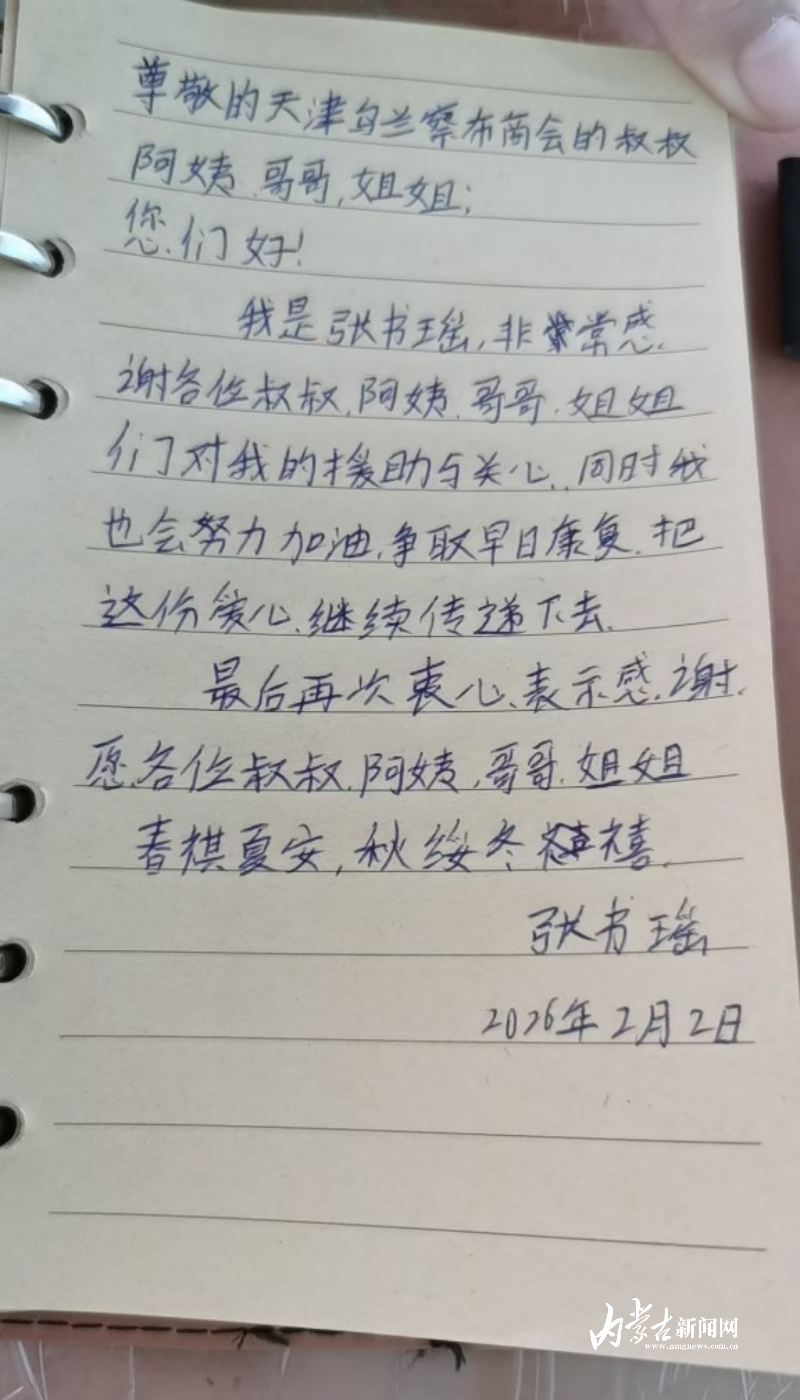 尊敬的天津乌兰察布商会的叔叔
阿姨.哥哥,姐姐;
您们好!
我是张书瑶,非常感
谢各位叔叔.阿姨.哥哥.姐姐
们对我的援助与关心,同时我
也会努力加油,争取早日康复.把
这份爱心继续传递下去.
最后再次衷心表示感谢.
愿各位叔叔.阿姨,哥哥.姐姐
春祺夏安,秋绥冬禧.
张书瑶
2026年2月2日
内蒙古新闻网
www.nmgnews.com.cn